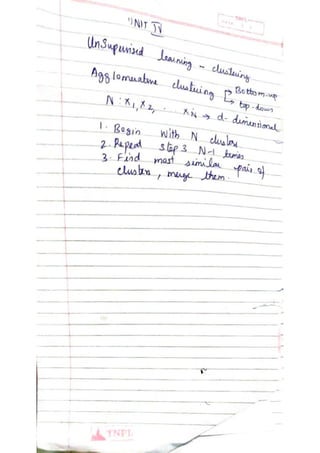 UNIT IV
UnSupervised learning - clustering
Agglomerative clustering → Bottom-up
→ top-down
N : x1, x2, . . xN → d-dimensional
1. Begin with N clusters
2. Repeat step 3 N-1 times
3. Find most similar pair of
clusters, merge them.
TNPL